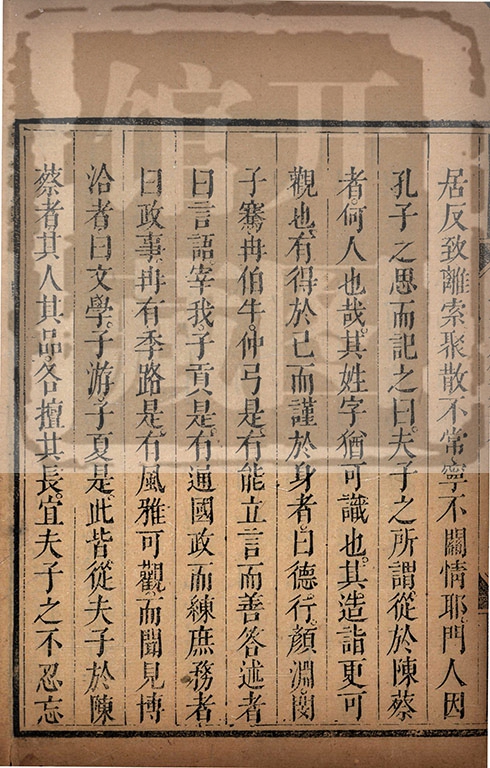 居反致離索聚散不常寧不關情耶門人因
孔子之思而記之曰夫子之所謂從於陳蔡
者何人也哉其姓字猶可識也其造詣更可
觀也有得於己而謹於身者曰德行顏淵閔
子騫冉伯牛仲弓是有能立言而善答述者
曰言語宰我子貢是有通國政而練庶務者
曰政事冉有季路是有風雅可觀而聞見博
洽者曰文學子游子夏是此皆從夫子於陳
蔡者其人其品各擅其長宜夫子之不忍忘